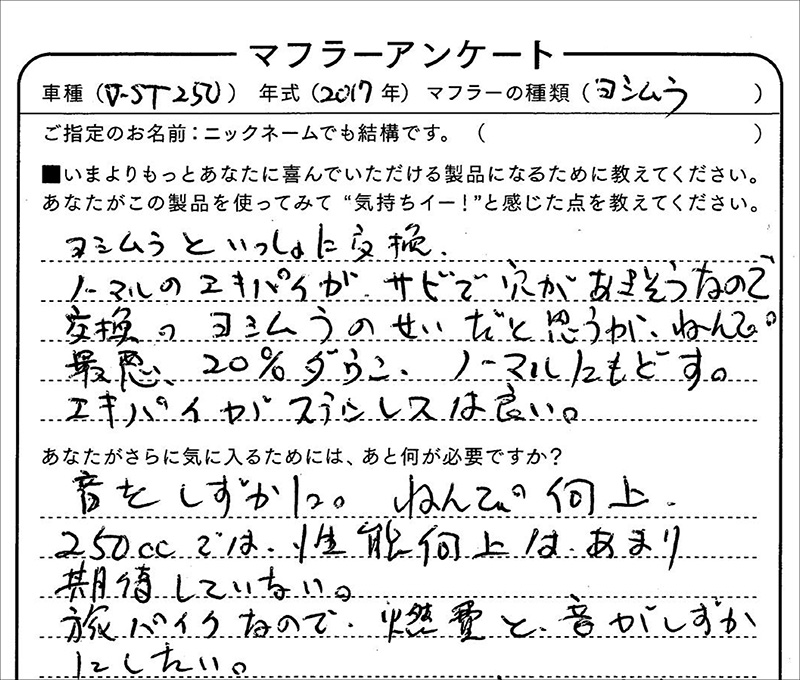 マフラーアンケート
車種(V-ST250) 年式(2017年) マフラーの種類(ヨシムラ)
ご指定のお名前:ニックネームでも結構です。( )
■いまよりもっとあなたに喜んでいただける製品になるために教えてください。
あなたがこの製品を使ってみて“気持ちイー!”と感じた点を教えてください。
ヨシムラといっしょに交換.
ノーマルのエキパイが、サビで穴があきそうなので
交換っ ヨシムラのせいだと思うが、ねんぴ。
最悪、20%ダウン、ノーマルにもどす。
エキパイがステンレスは良い。
あなたがさらに気に入るためには、あと何が必要ですか?
音をしずかに。 ねんぴ 何上.
250ccでは、性能何上は、あまり
期待していない。
旅バイクなので、燃費と、音がしずか
にしたい。